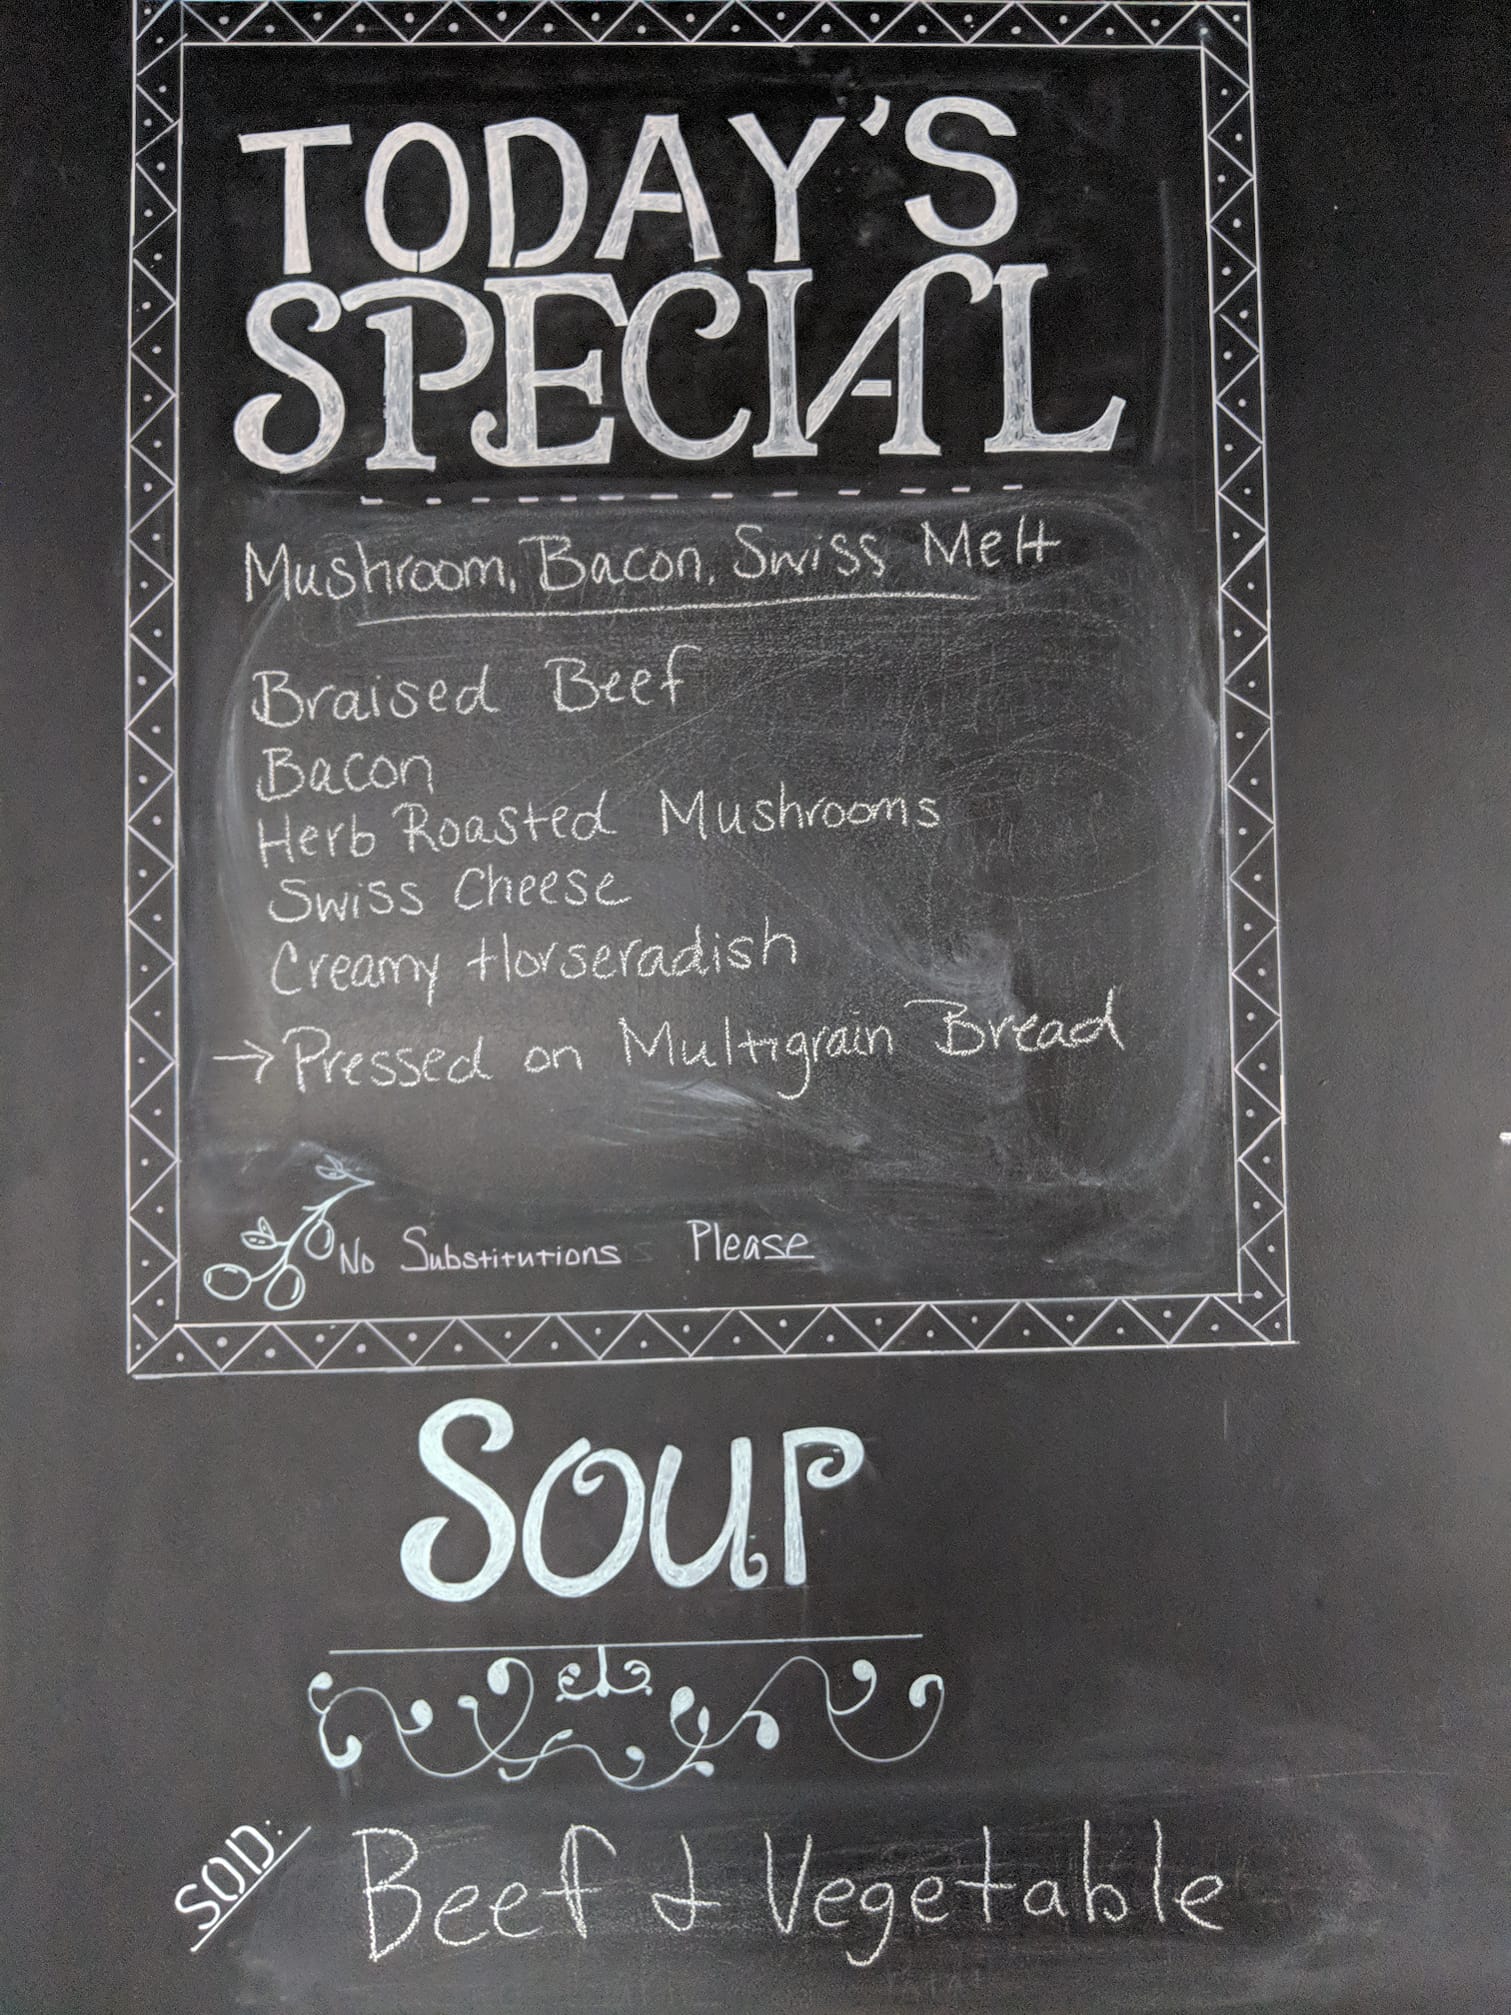 TODAY'S
SPECIAL
Mushroom, Bacon, Swiss Melt
Braised Beef
Bacon
Herb Roasted Mushrooms
Swiss Cheese
Creamy Horseradish
→ Pressed on Multigrain Bread
No Substitutions Please
SOUP
SOD:
Beef & Vegetable